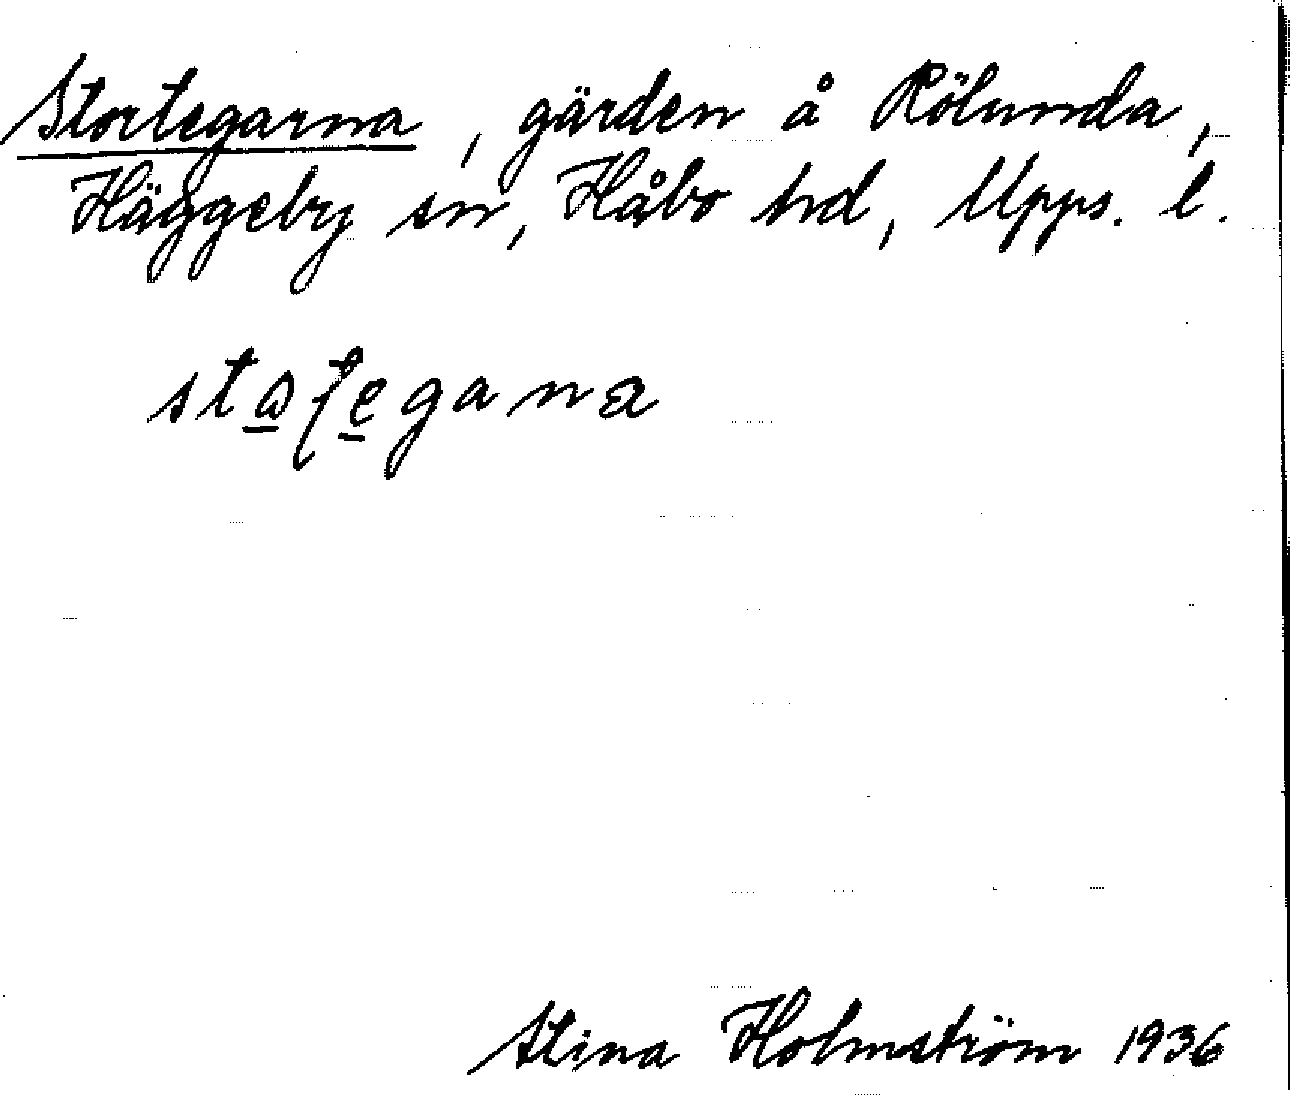 Stortegarna, gärden å Rölunda,
Häggeby sn, Håbo hd, Upps. l.
Stina Holmström 1936